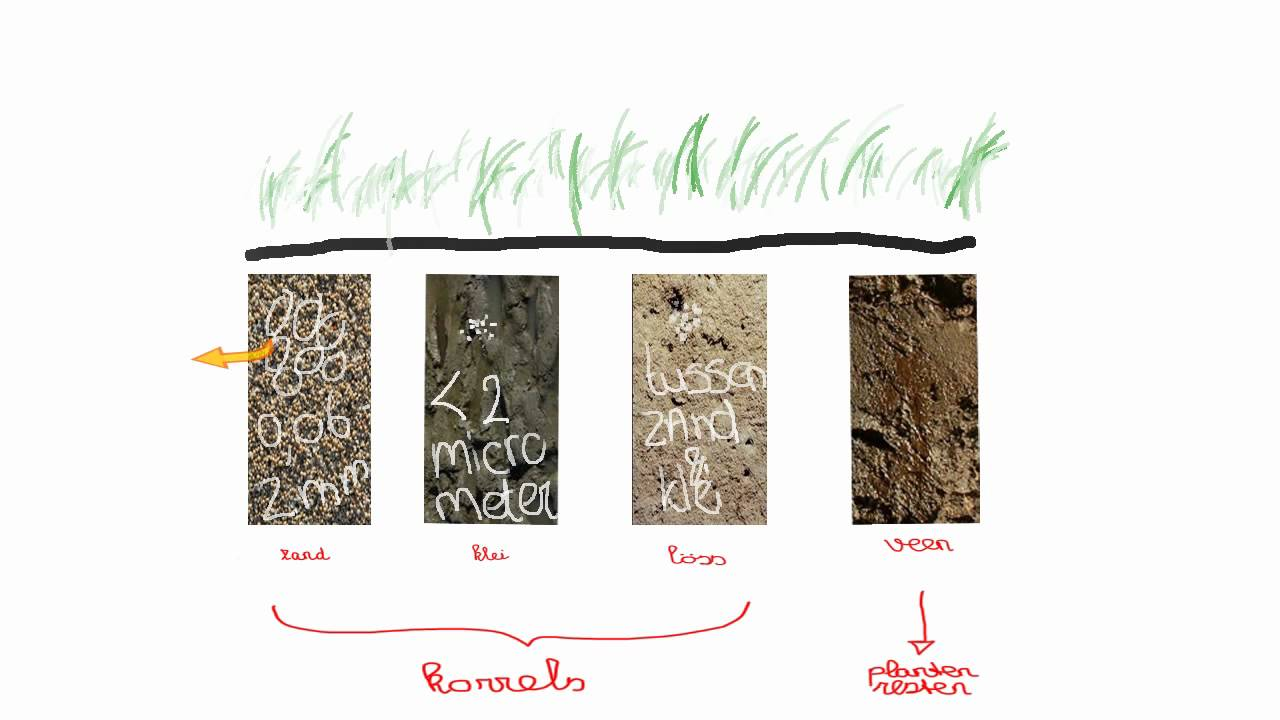 0,06-
2mm
< 2
micro
meter
tussen
zAnd
&
klei
zand
klei
löss
veen
korrels
planten
resten